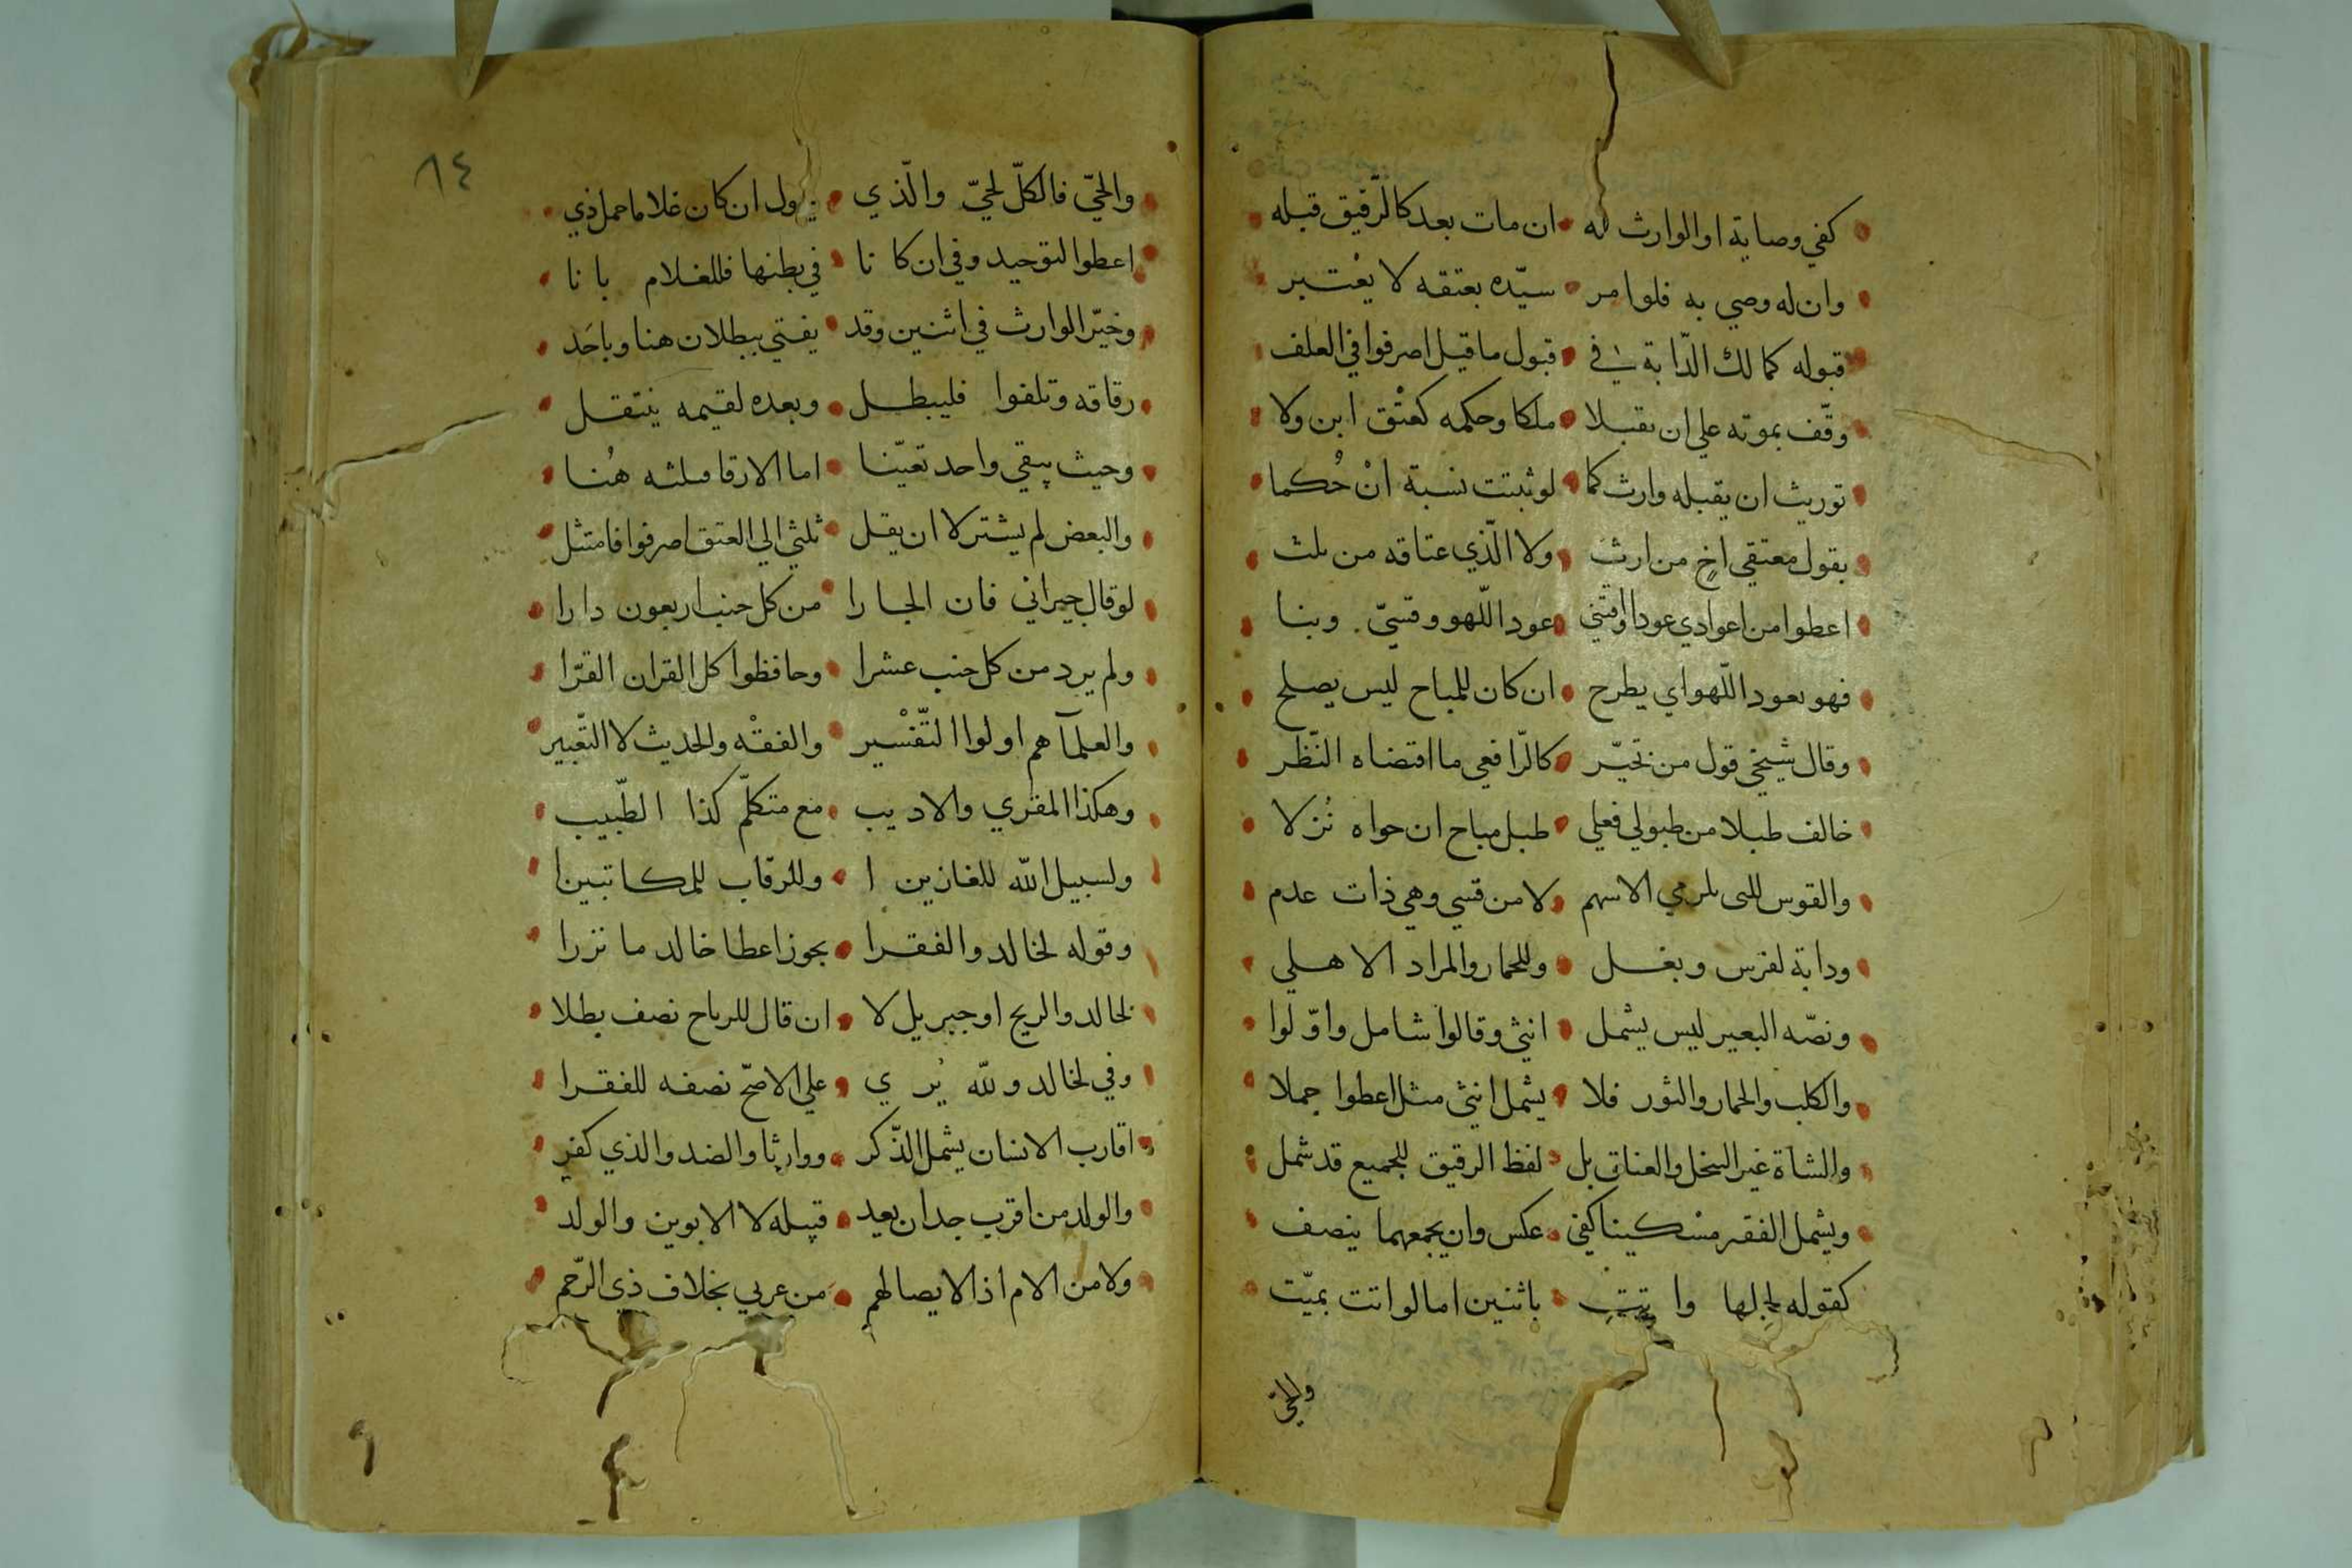 كفي وصاية او الوارث له • ان مات بعد كالرّقيق قبله
وان له وصي به فلو امر • سيّده بعتقه لا يعْتبر
قبوله كما لك الدّابة في • قبول ما قيل اصرفوا في العلف
وقّف بموته علي ان يقبلا • ملكا وحكمه كعتْق ابن ولا
توريث ان يقبله وارث كما • لو ثبتت نسبة انْ حُكما
بقول معتقي اخٍ من ارث • ولا الّذي عتاقه من ثلث
اعطوا من اعوادي عودا اوقتني • عود اللّهو وقسيّ وبنا
فهو بعود اللّهو اي يطرح • ان كان للمباح ليس يصلح
وقال شيخي قول من تخيّر • كالرّافعي ما اقتضاه النّظر
خالف طبلا من طبولي فعلي • طبل مباح ان حواه نُزلا
والقوس لرمي الاسهم • لا من قسي وهي ذات عدم
ودابة لفرس وبغل • وللحمار والمراد الاهلي
ونصّه البعير ليس يشمل • انثي وقالوا شامل واوّلوا
والكلب والحمار والثور فلا • يشمل انثي مثل اعطوا جملا
والشاة غير السخل والعناق بل • لفظ الرقيق للجميع قد شمل
ويشمل الفقير مسْكينا كفي • عكس وان يجمعهما ينصف
كقوله لحملها وا تت • باثنين اما لو اتت بميّت
والحيّ
٨٤
والحيّ فالكلّ لحيّ والّذي • يقول ان كان غلاما حمل ذي
اعطوا لتوحيد وفي ان كا نا • في بطنها فللغلام بانا
وخيّر الوارث في اثنين وقد • يفتي ببطلان هنا وباحَد
رقاقه وتلفوا فليبطل • وبعده لقيمه ينتقل
وحيث يبقي واحد تعيّنا • اما الارقا فثلثه هُنا
والبعض لم يشتر لا ان يقل • ثلثي الي العتق اصرفوا فامتثل
لو قال جيراني فان الجارا • من كل جنب اربعون دارا
ولم يرد من كل جنب عشرا • وحافظوا كل القران القرّا
والعلمآ هم اولوا التّفْسير • والفقْه والحديث لا التّعْبير
وهكذا المقري والاديب • مع متكلّم كذا الطّبيب
ولسبيل الله للغازين ا • وللرّقاب للمكاتبينا
وقوله لخالد والفقرا • يجوز اعطا خالد ما نزرا
لخالد والريح او جبريل لا • ان قال للرياح نصف بطلا
وفي لخالد ولله يُري • علي الاصحّ نصفه للفقرا
اقارب الانسان يشمل الذّكر • ووارثا والضد والذي كفر
والولد من اقرب جد ان يعد • قبيله لا الابوين والولد
ولا من الام اذ الايصا لهم • من عربي بخلاف ذي الرّحم